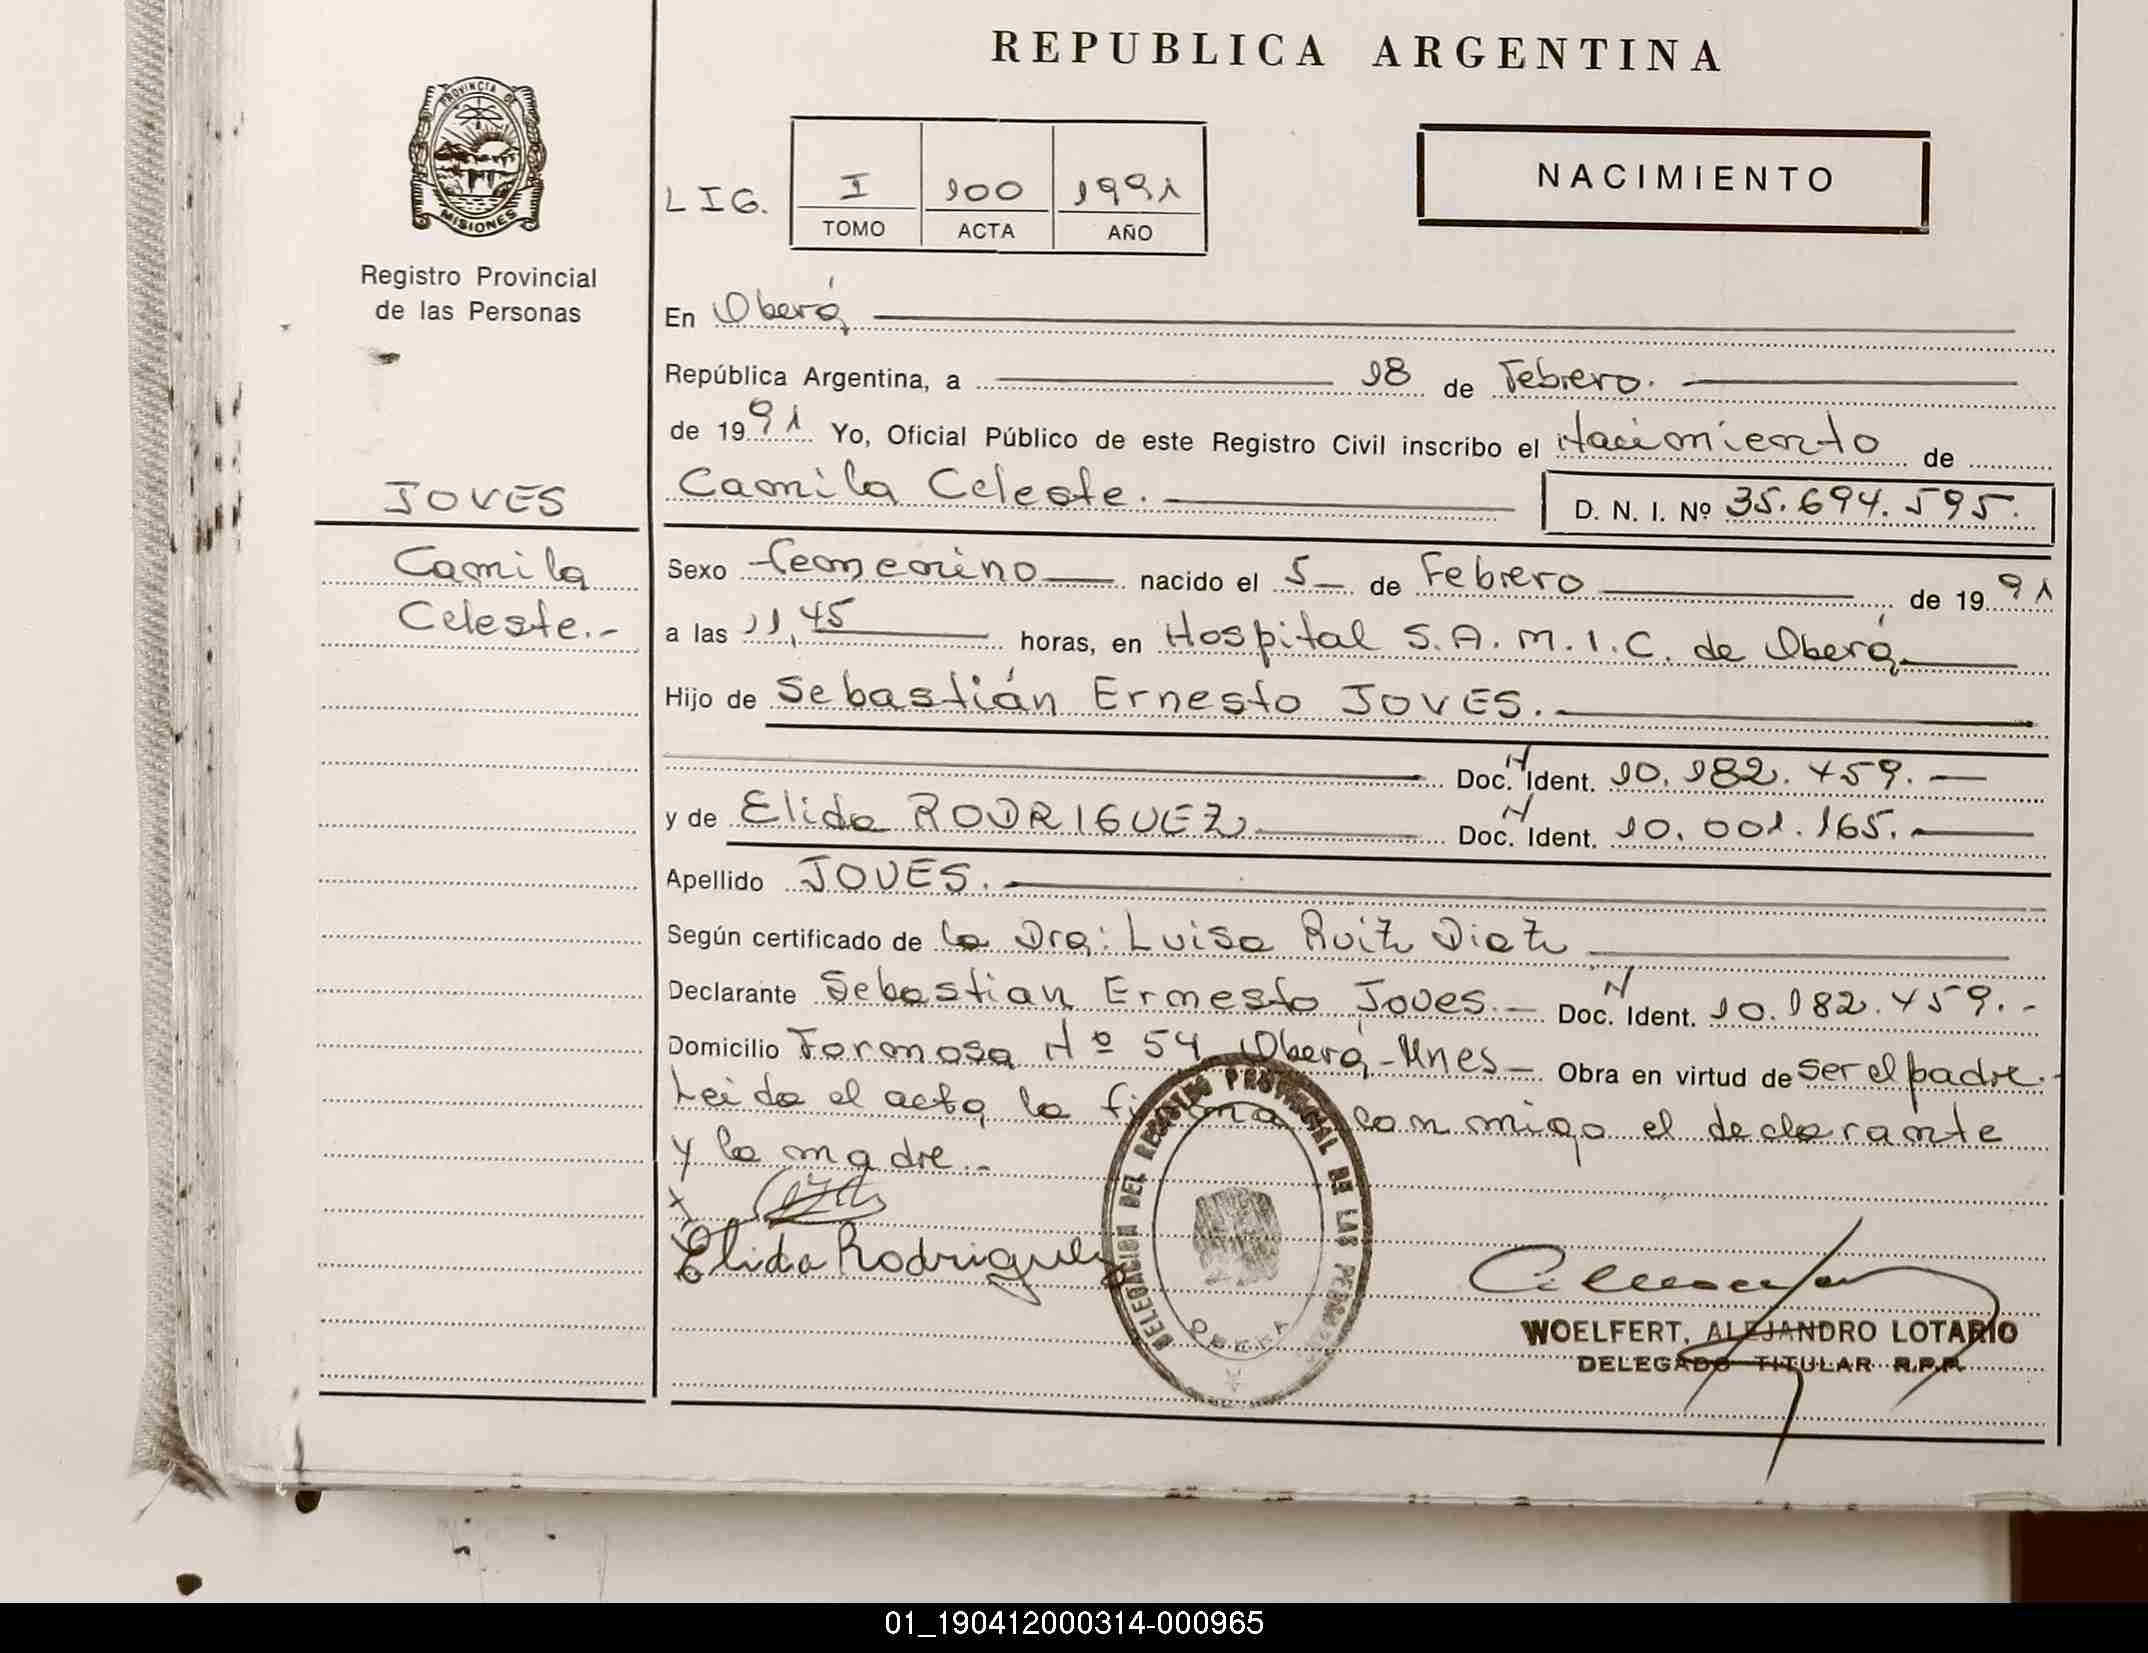 REPUBLICA ARGENTINA
PROVINCIA DE
MISIONES
Registro Provincial
de las Personas
LIG.
I 100 1991
TOMO ACTA AÑO
NACIMIENTO
En Oberá
República Argentina, a 18 de Febrero.
de 1991 Yo, Oficial Público de este Registro Civil inscribo el Nacimiento de
Camila Celeste. D. N. I. Nº 35.694.595.
JOVES
Camila
Celeste.-
Sexo femenino nacido el 5 de Febrero de 1991
a las 11,45 horas, en Hospital S.A.M.I.C. de Oberá
Hijo de Sebastián Ernesto JOVES.
Doc. N Ident. 10.182.459.
y de Elida RODRIGUEZ Doc. N Ident. 10.001.165.
Apellido JOVES.
Según certificado de la Dra: Luisa Ruiz Diaz
Declarante Sebastian Ernesto Joves.- Doc. N Ident. 10.182.459.-
Domicilio Formosa Nº 54 Oberá-Mnes Obra en virtud de ser el padre.-
Leida el acta, la firma conmigo el declarante
y la madre.-
Elida Rodriguez
DELEGACION DEL REGISTRO PROVINCIAL DE LAS PERSONAS
OBERA
WOELFERT, ALEJANDRO LOTARIO
DELEGADO TITULAR R.P.P.
01_190412000314-000965